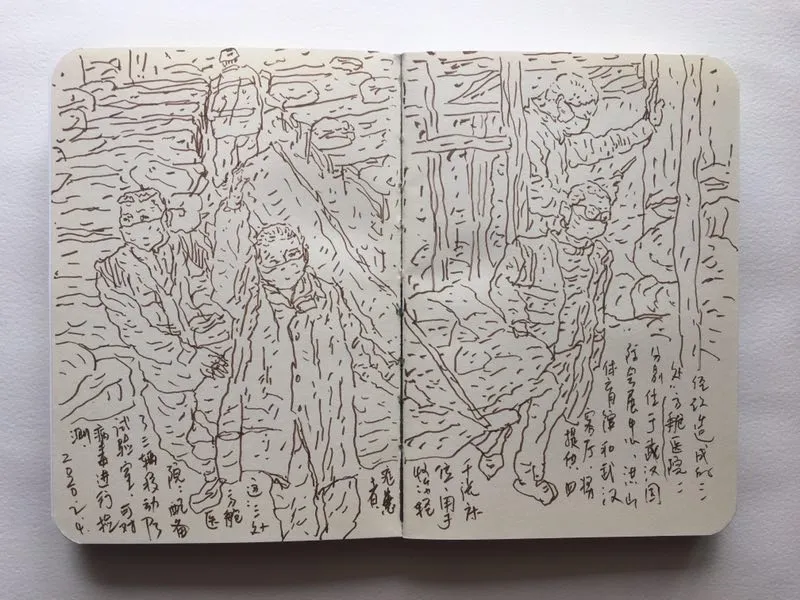 经改造成的三
处“方舱医院”
分别位于武汉国
际会展中心、洪山
体育馆和武汉
客厅,将
提供四
千张床
位,用于
收治轻
症患
者
这三处
方舱医
院配备
了三辆移动P3
试验室,可对
病毒进行检
测.2020.2.4.